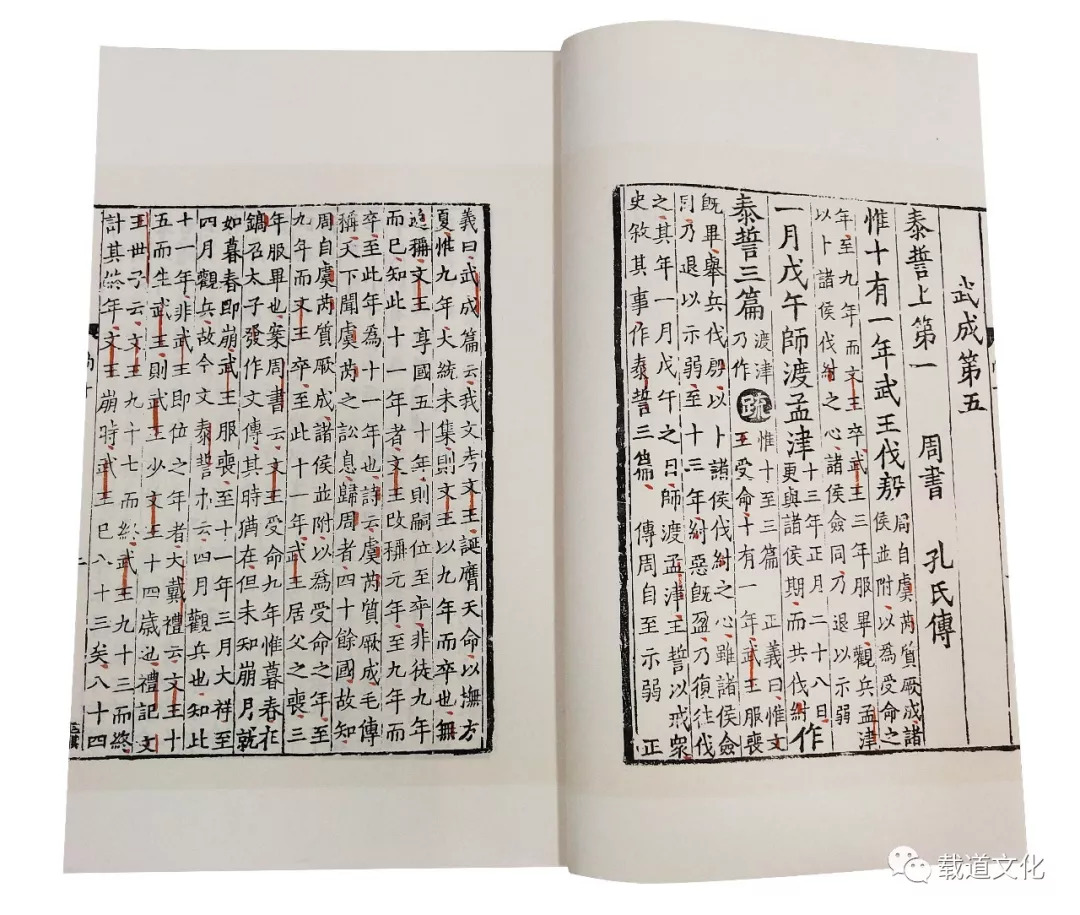 武成第五
泰誓上第一 周書 孔氏傳
惟十有一年武王伐殷 周自虞芮質厥成諸
侯並附以為受命之
年至九年而文王卒武王三年服畢觀兵孟津
以卜諸侯伐紂之心諸侯僉同乃退以示弱
一月戊午師渡孟津 十三年正月二十八日
更與諸侯期而共伐紂 作
泰誓三篇 渡津
乃作 疏 惟十至三篇 正義曰惟文
王受命十有一年武王服喪
既畢舉兵伐殷以卜諸侯伐紂之心雖諸侯僉
同乃退以示弱至十三年紂惡既盈乃復往伐
之其年一月戊午之日師渡孟津王誓以戒衆
史敘其事作泰誓三篇 傳周自至示弱 正
義曰武成篇云我文考文王誕膺天命以撫方
夏惟九年大統未集則文王以九年而卒也無
逸稱文王享國五十年則嗣位至卒非徒九年
而已知此十一年者文王改稱元年至九年而
卒至此年為十一年也詩云虞芮質厥成毛傳
稱天下聞虞芮之訟息歸周者四十餘國故知
周自虞芮質厥成諸侯並附以為受命之年至
九年而文王卒至此十一年武王居父之喪三
年服畢也案周書云文王受命九年惟暮春在
鎬召太子發作文傳其時猶在但未知崩月就
如暮春即崩武王服喪至十一年三月大祥至
四月觀兵故今文泰誓亦云四月觀兵也知此
十一年非武王即位之年者大戴禮云文王十
五而生武王則武王少文王十四歲也禮記文
王世子云文王九十七而終武王九十三而終
計其終年文王崩時武王已八十三矣八十四
载道文化